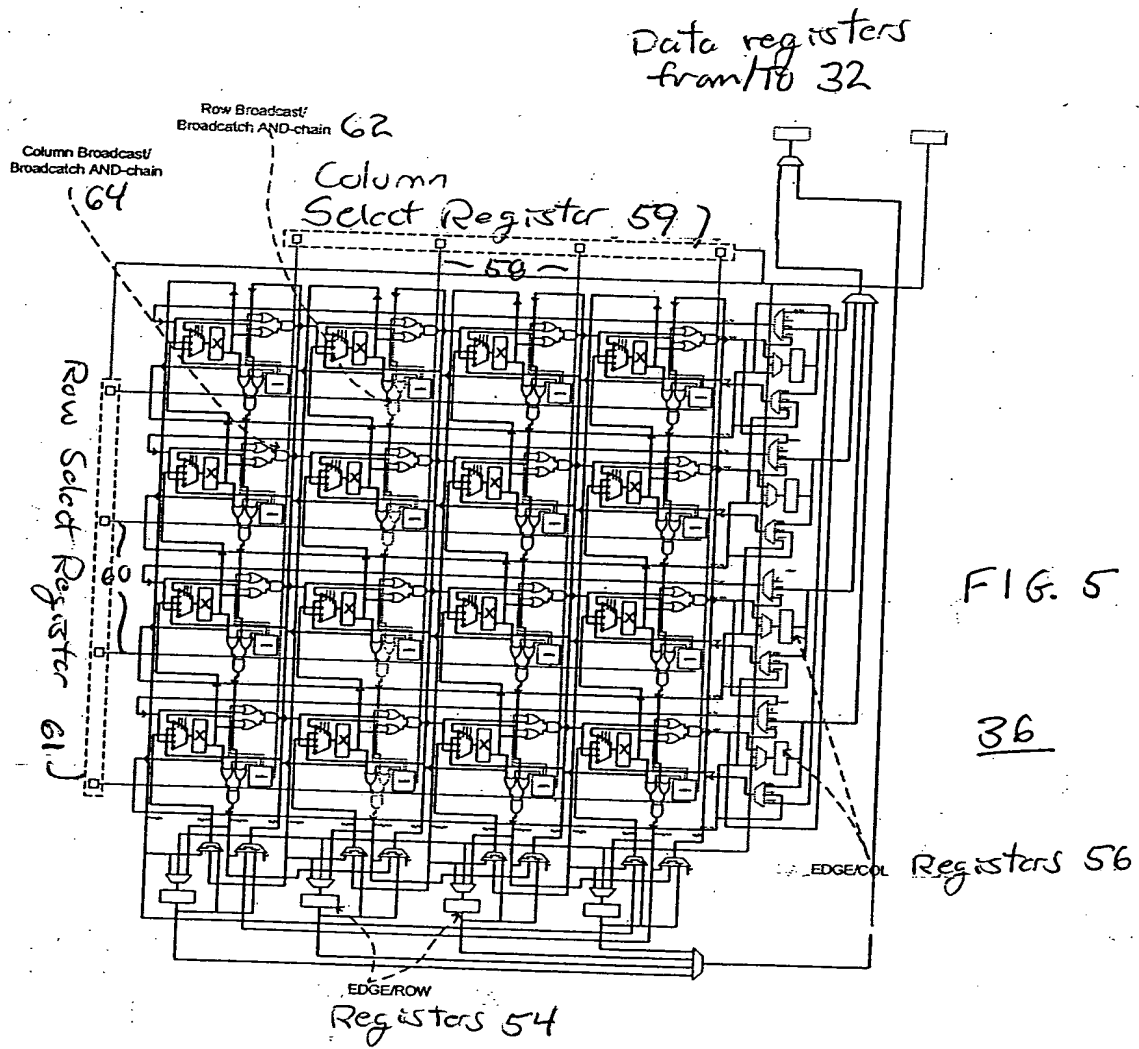 Data registers
from/to 32
Row Broadcast/
Broadcatch AND-chain 62
Column Broadcast/
Broadcatch AND-chain
64
Column
Select Register 59
58
Row Select Register 61
60
X X X X
X X X X
X X X X
X X X X
FIG. 5
36
EDGE/COL Registers 56
EDGE/ROW
Registers 54